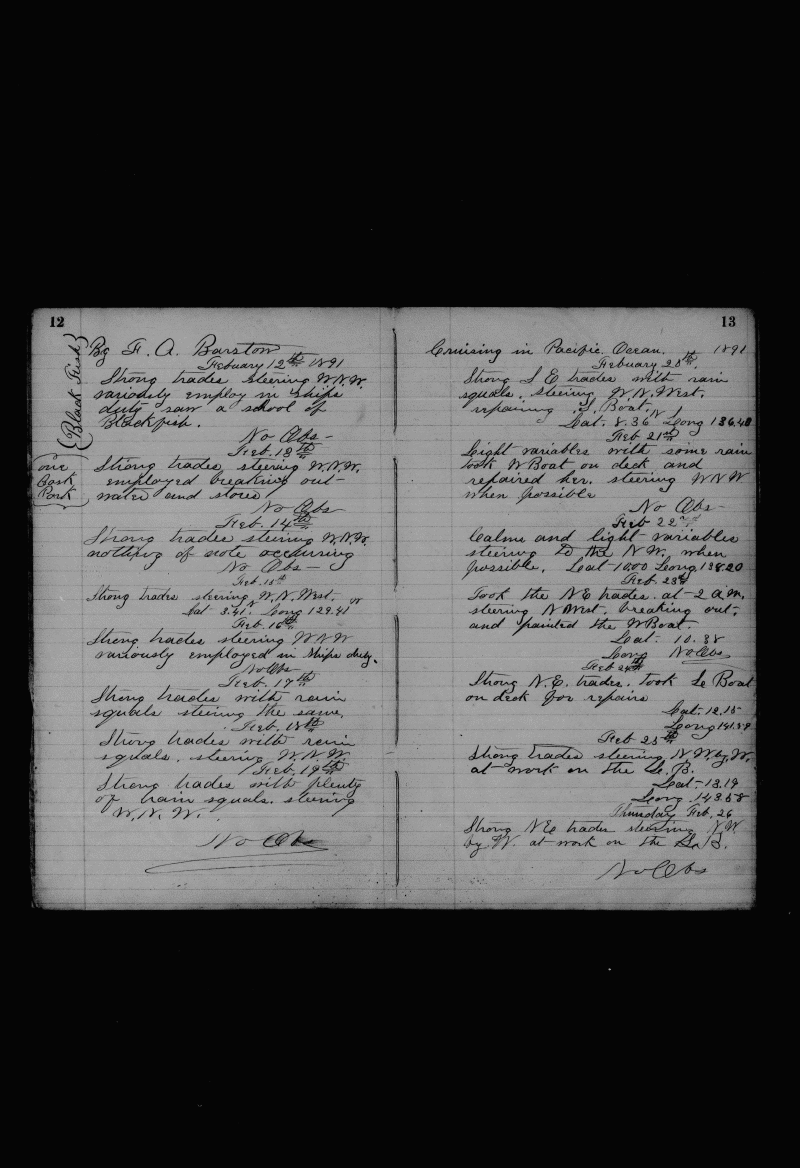 12
{Black Fish}
By F. A. Barston
Febuary 12th 1891
Strong trades steering W.N.W.
variously employ in ships
duty saw a school of
Blackfish.
No Obs-
Feb. 13th
one
Cask
Pork
Strong trades, steering W.N.W.
employed breaking out-
water and stores
No Obs
Feb. 14th
Strong trades steering W.N.W.
nothing of note occurring
No Obs-
Feb. 15th
Strong trades steering W.N. West.
Lat 3.41 N Long 129.41 W
Feb. 16th
Strong trades steering W N W
variously employed in ships duty.
No Obs
Feb. 17th
Strong trades with rain
squals steering the same.
Feb. 18th
Strong trades with rain
squals. steering W.N.W.
Feb. 19th
Strong trades with plenty
of rain squals. steering
W.N.W.
No Ob
13
Cruising in Pacific Ocean. 1891
Febuary 20th.
Strong S E trades with rain
squals. steering W.N. West.
repairing S. Boat.
Lat. 8.36 N Long 136.40
Feb 21st
Light variables with some rain
took W Boat on deck and
repaired her. steering W N W
when possible
No Obs-
Feb 22nd
Calms and light variables
steering N W. when
possible. Lat-10.00 Long 138.20
Feb 23d
Took the N E trades. at-2 a.m.
steering N West. breaking out.
and painted the W Boat.
Lat. 10.38
Long No Obs
Feb 24th
Strong N. E. trades. took La Boat
on deck for repairs
Lat-12.15
Long 141.59
Feb 25th
Strong trades steering N W. by. W.
at work on the La. B.
Lat-13.19
Long. 143.58
Thursday Feb. 26
Strong N E trades steering N W
by W. at work on the La B.
No Obs